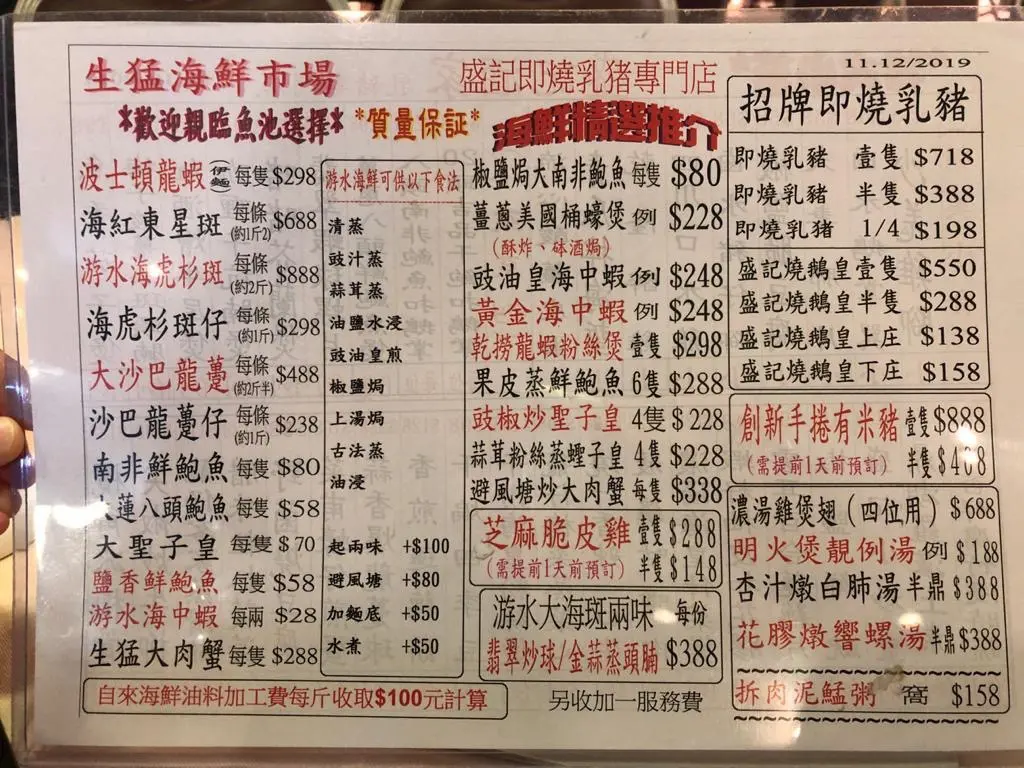 11.12/2019
生猛海鮮市場
盛記即燒乳猪專門店
*歡迎親臨魚池選擇*
*質量保証*
海鮮精選推介
波士頓龍蝦(伊麵) 每隻 $298
海紅東星斑 每條(約1斤2) $688
游水海虎杉斑 每條(約2斤) $888
海虎杉斑仔 每條(約1斤) $298
大沙巴龍躉 每條(約2斤半) $488
沙巴龍躉仔 每條(約1斤) $238
南非鮮鮑魚 每隻 $80
蓮八頭鮑魚 每隻 $58
大聖子皇 每隻 $70
鹽香鮮鮑魚 每隻 $58
游水海中蝦 每兩 $28
生猛大肉蟹 每隻 $288
自來海鮮油料加工費每斤收取$100元計算
游水海鮮可供以下食法
清蒸
豉汁蒸
蒜茸蒸
油鹽水浸
豉油皇煎
椒鹽焗
上湯焗
古法蒸
油浸
起兩味 +$100
避風塘 +$80
加麵底 +$50
水煮 +$50
椒鹽焗大南非鮑魚 每隻 $80
薑蔥美國桶蠔煲 例 $228
(酥炸、砵酒焗)
豉油皇海中蝦 例 $248
黃金海中蝦 例 $248
乾撈龍蝦粉絲煲 壹隻 $298
果皮蒸鮮鮑魚 6隻 $288
豉椒炒聖子皇 4隻 $228
蒜茸粉絲蒸蟶子皇 4隻 $228
避風塘炒大肉蟹 每隻 $338
芝麻脆皮雞 壹隻 $288
(需提前1天前預訂) 半隻 $148
游水大海斑兩味 每份
翡翠炒球/金蒜蒸頭腩 $388
另收加一服務費
招牌即燒乳豬
即燒乳豬 壹隻 $718
即燒乳豬 半隻 $388
即燒乳豬 1/4 $198
盛記燒鵝皇壹隻 $550
盛記燒鵝皇半隻 $288
盛記燒鵝皇上庄 $138
盛記燒鵝皇下庄 $158
創新手捲有米豬 壹隻 $888
(需提前1天前預訂) 半隻
濃湯雞煲翅(四位用) $688
明火煲靚例湯 例 $188
杏汁燉白肺湯 半鼎 $388
花膠燉響螺湯 半鼎 $388
拆肉泥鯭粥 窩 $158